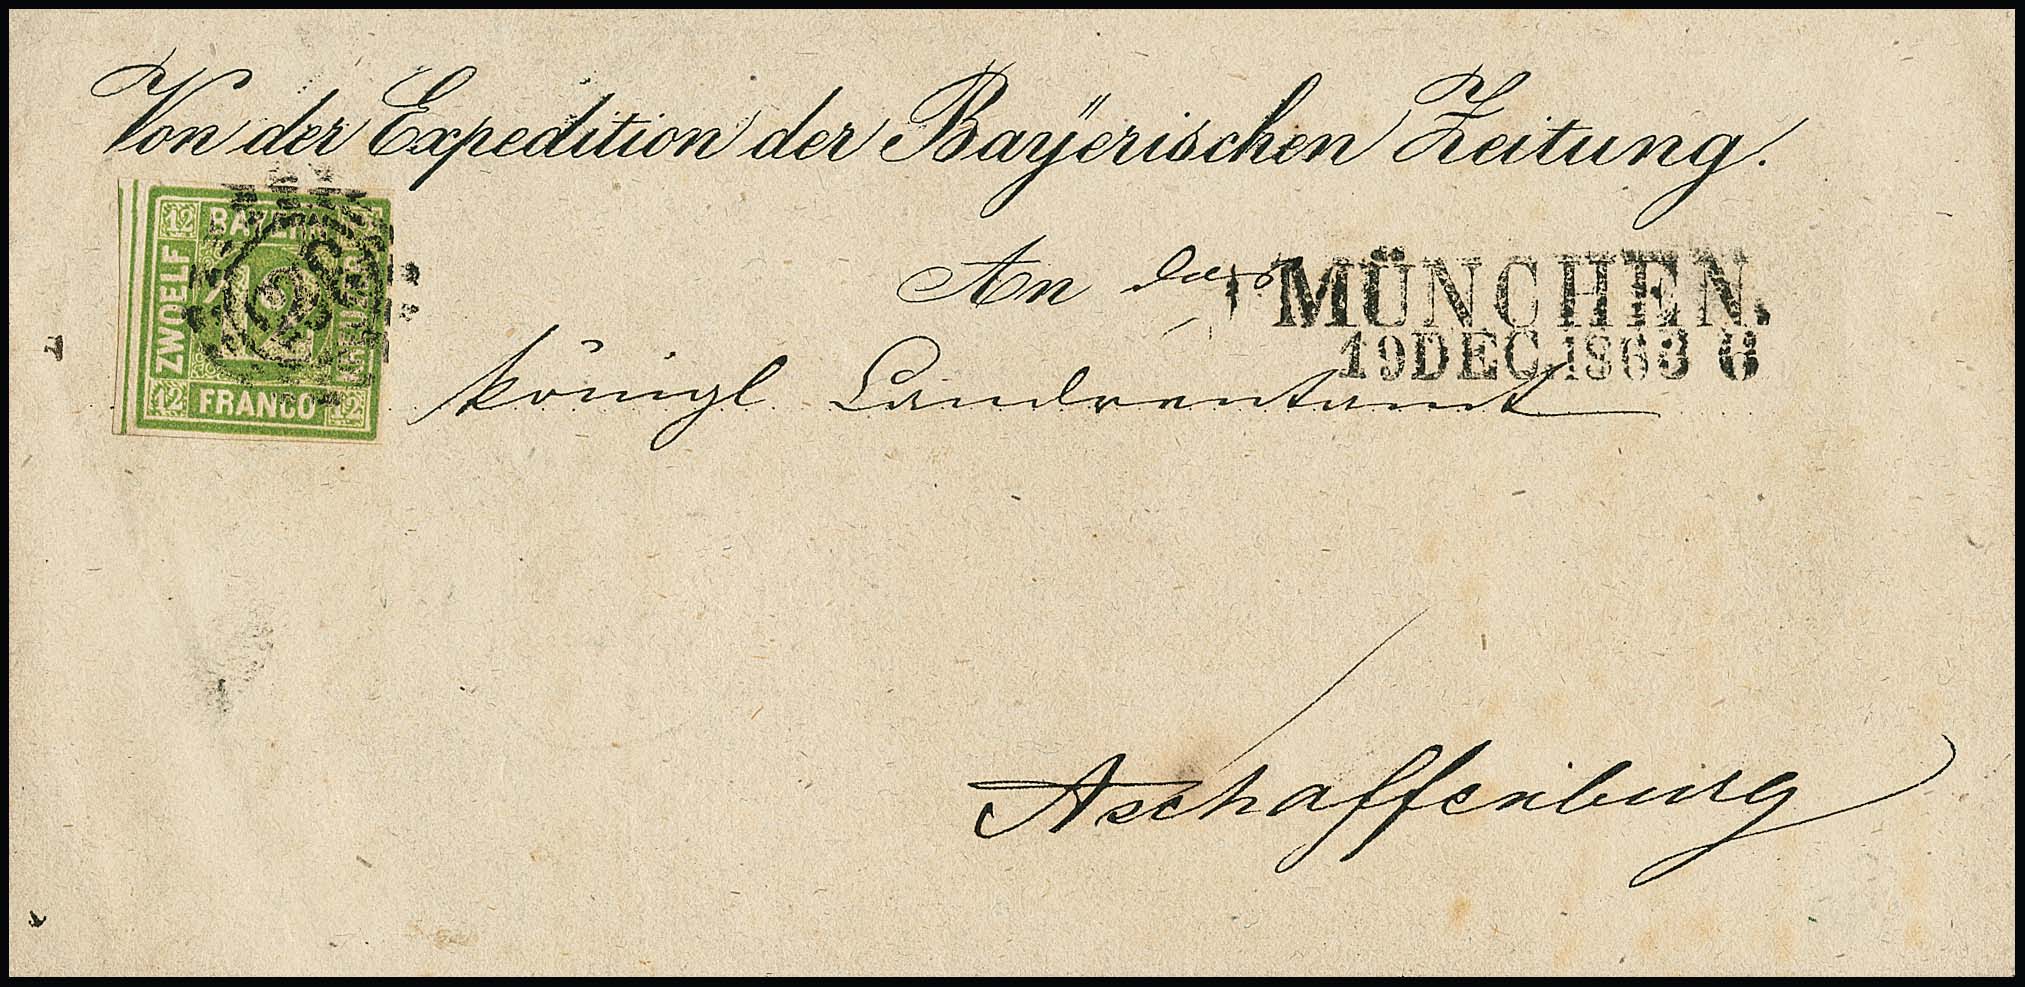 Von der Expedition der Baÿerischen Zeitung.
An das
MÜNCHEN.
19 DEC 1863
königl. Landrentamt
Aschaffenburg
12 BAYERN
ZWOELF
12
KREUZER
12 FRANCO 12